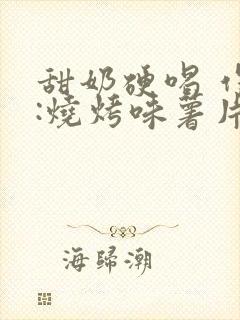 甜奶硬唱 作
:燒烤味薯片
海歸潮